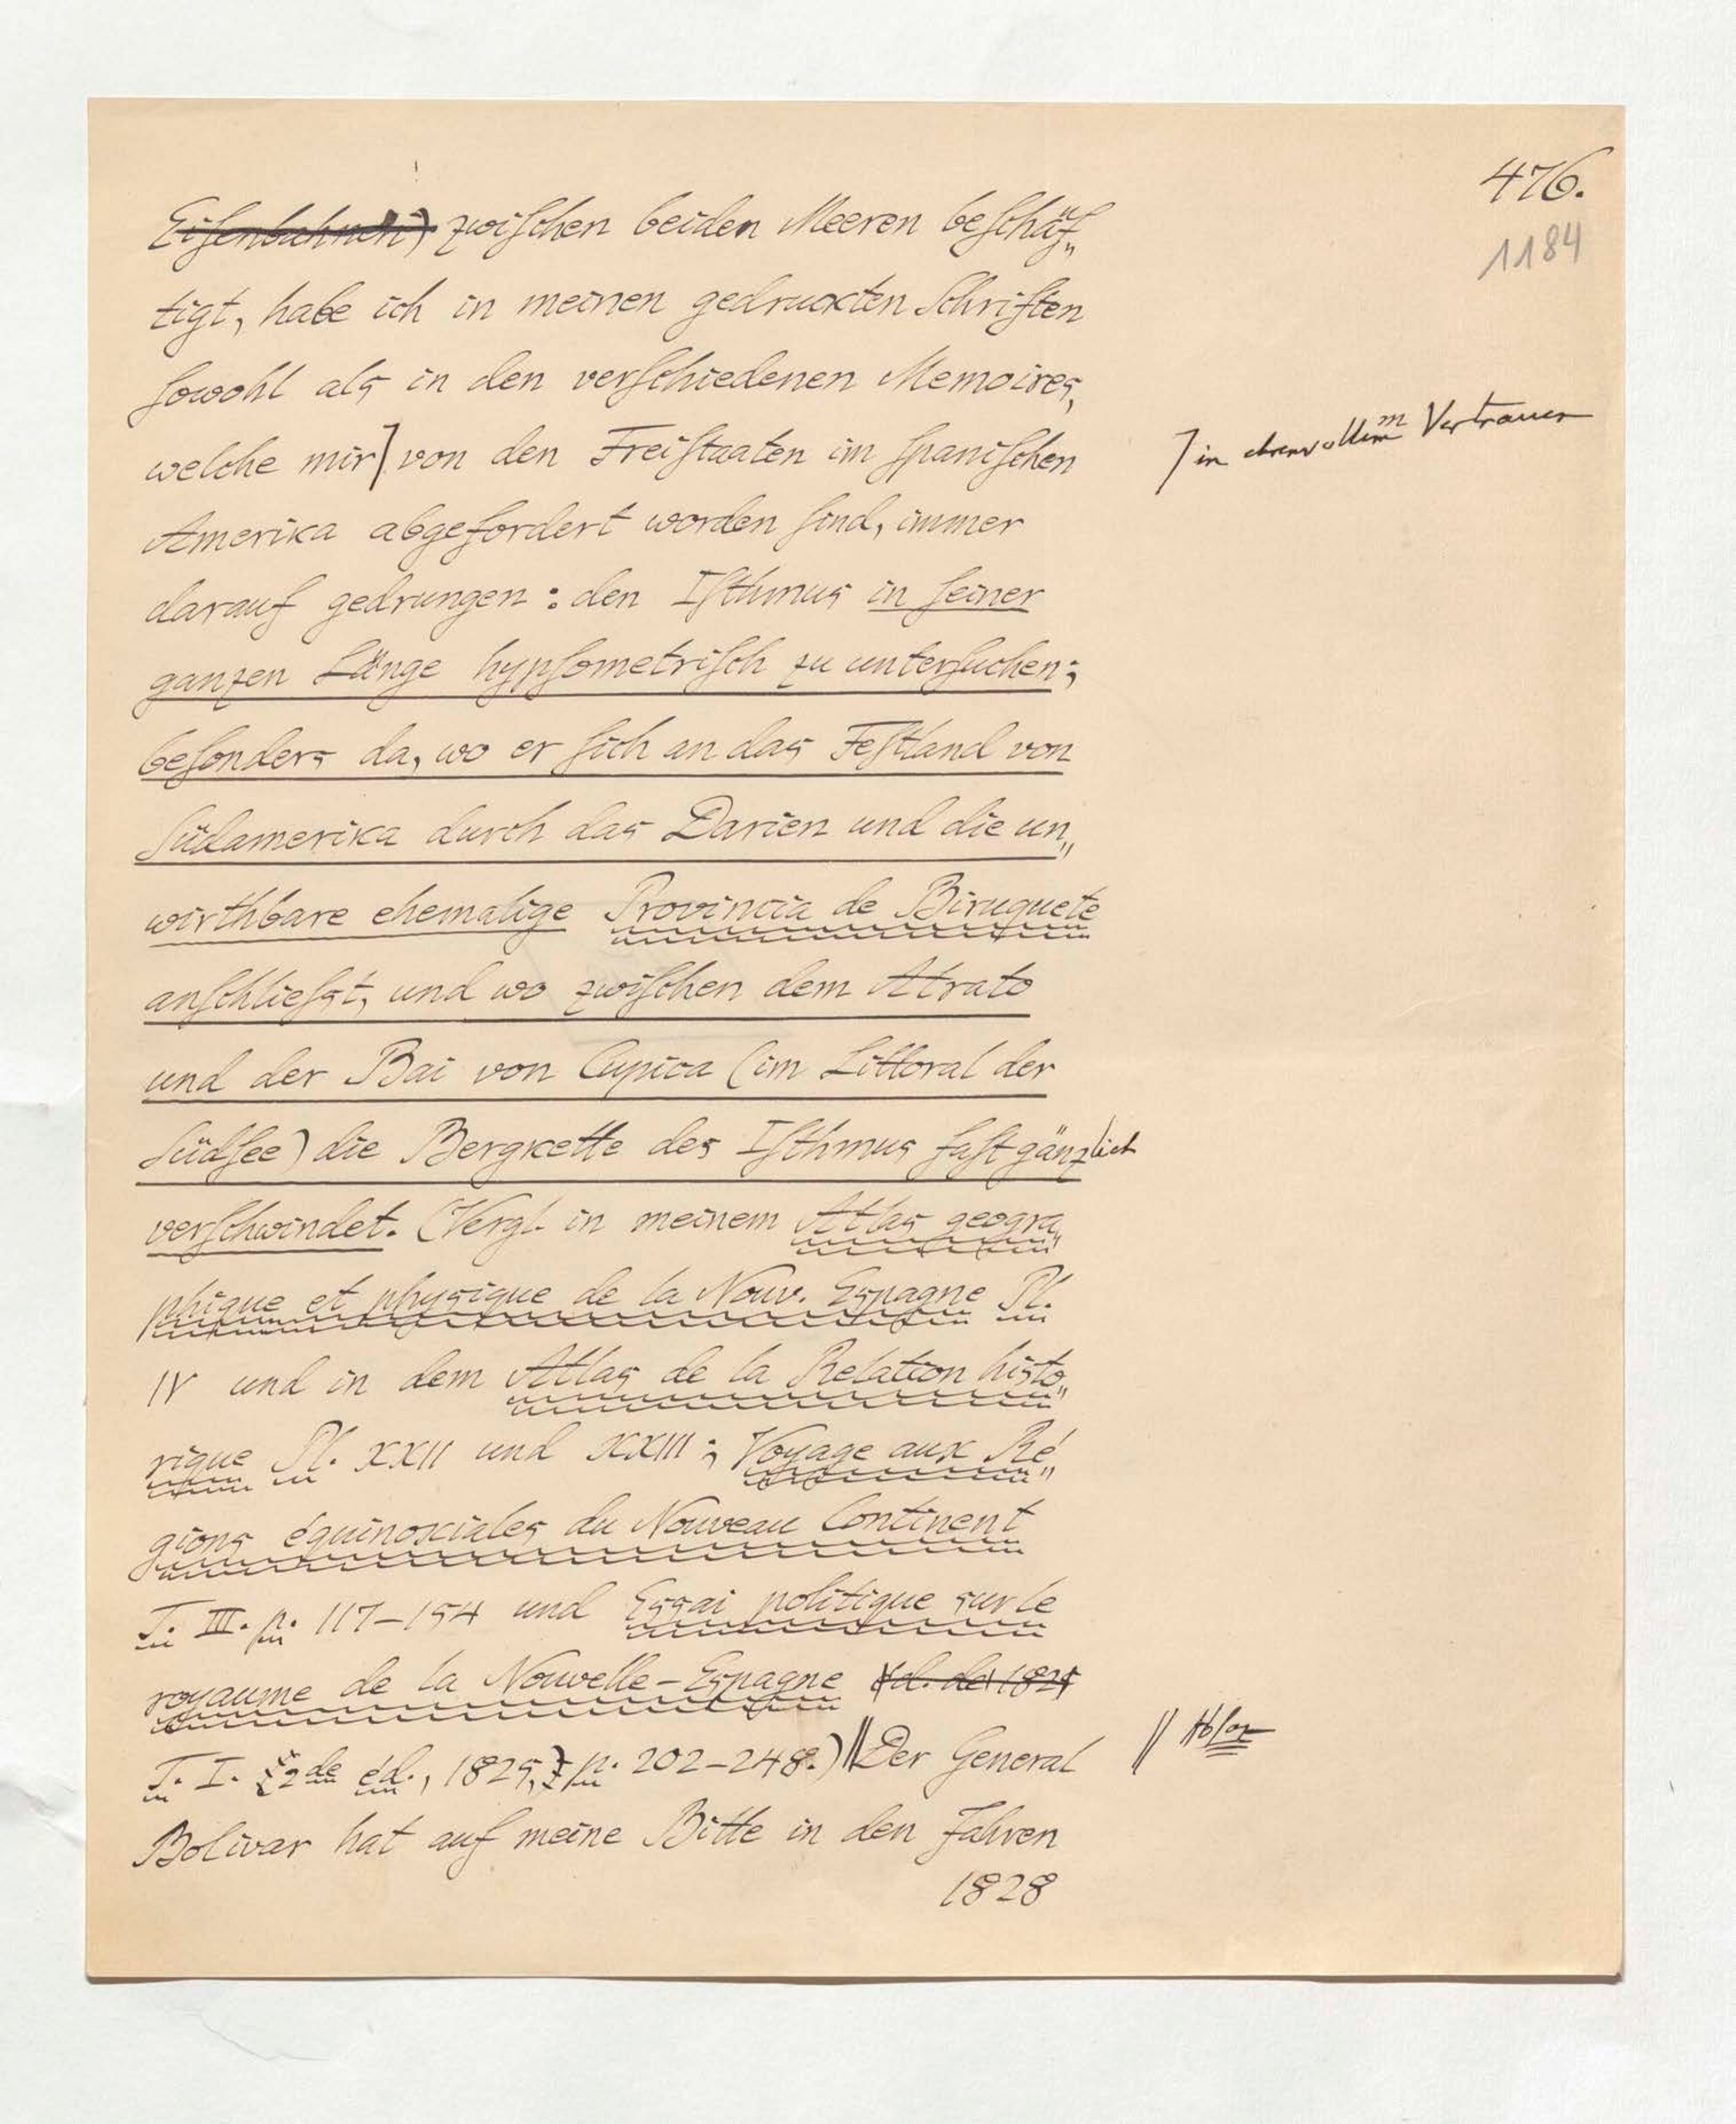 476.
1184
Eisenbahnen) zwischen beiden Meeren beschäf„
tigt, habe ich in meinen gedruckten Schriften
sowohl als in den verschiedenen Memoires,
welche mir⌉ von den Freistaaten im spanischen
⌉ in ehrenvollem Vertrauen
Amerika abgefordert worden sind, immer
darauf gedrungen: den Isthmus in seiner
ganzen Länge hypsometrisch zu untersuchen;
besonders da, wo er sich an das Festland von
Südamerika durch das Darien und die un„
wirthbare ehemalige Provincia de Biruquete
anschliesst, und wo zwischen dem Atrato
und der Bai von Cupica (im Littoral der
Südsee) die Bergkette des Isthmus fast gänzlich
verschwindet. (Vergl. in meinem Atlas geogra„
phique et physique de la Nouv. Espagne Pl.
IV und in dem Atlas de la Relation histo„
rique Pl. XXII und XXIII; Voyage aux Ré„
gions équinoxiales du Nouveau Continent
T. III. p. 117–154 und Essai politique sur le
royaume de la Nouvelle-Espagne éd. de 1825
T. I. (2de éd., 1825,) p. 202–248.) ‖ Der General
‖ Absaz
Bolivar hat auf meine Bitte in den Jahren
1828